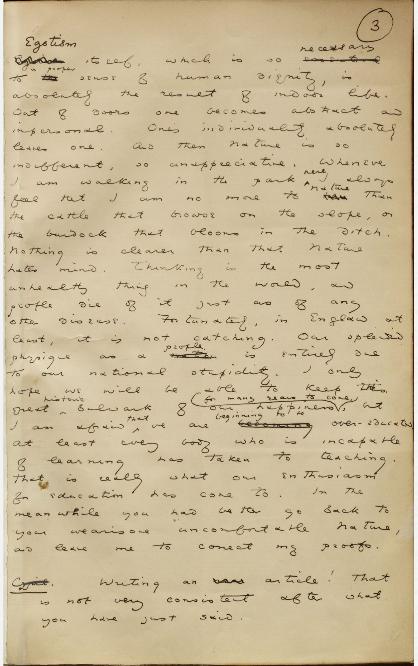 3
Egotism
itself, which is so necessary
to a proper sense of human dignity, is
absolutely the result of indoor life.
Out of doors one becomes abstract and
impersonal. One's individuality absolutely
leaves one. And then Nature is so
indifferent, so unappreciative. Whenever
I am walking in the park here, I always
feel that I am no more to Nature than
the cattle that browse on the slope, or
the burdock that blooms in the ditch.
Nothing is clearer than that Nature
hates mind. Thinking is the most
unhealthy thing in the world, and
people die of it just as of any
other disease. Fortunately, in England at
least, it is not catching. Our splendid
physique as a people is entirely due
to our national stupidity. I only
hope we will be able to keep this
great historic bulwark of our happiness for many years to come, but
I am afraid that we are beginning to be over-educated
at least every body who is incapable
of learning has taken to teaching.
That is really what our enthusiasm
for education has come to. In the
mean while you had better go back to
your wearisome uncomfortable Nature,
and leave me to correct my proofs.
Cyril. Writing an article! That
is not very consistent after what
you have just said.